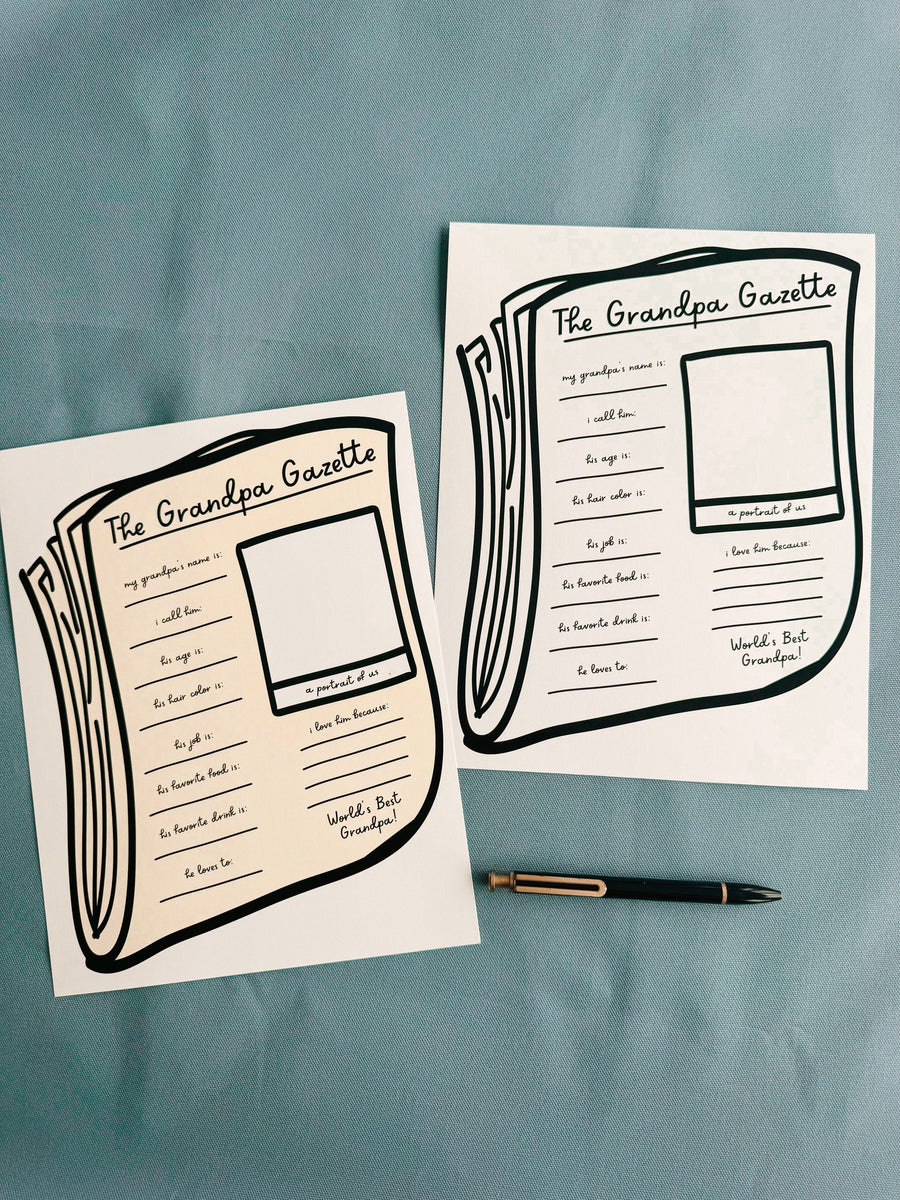 The Grandpa Gazette
my grandpa's name is:
i call him:
his age is:
his hair color is:
his job is:
his favorite food is:
his favorite drink is:
he loves to:
a portrait of us
i love him because:
World's Best
Grandpa!
The Grandpa Gazette
my grandpa's name is:
i call him:
his age is:
his hair color is:
his job is:
his favorite food is:
his favorite drink is:
he loves to:
a portrait of us
i love him because:
World's Best
Grandpa!